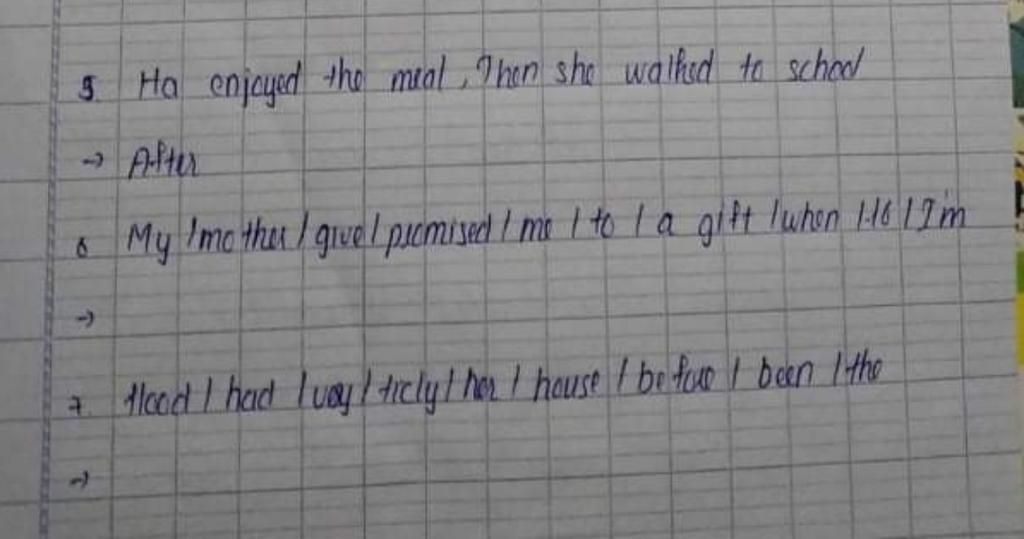 5. Ha enjoyed the meal, Then she walked to school
→ After
6 My / mother / give / promised / me / to / a gift / when / 16 / I'm
→
7. flood / had / very / ticly / her / house / before / been / the
→